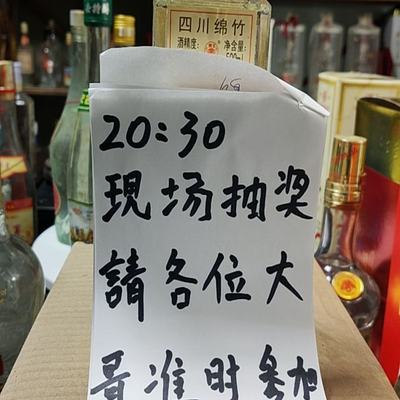 四川绵竹
酒精度: 净含量:
20:30
現场抽奖
請各位大
哥准时参加